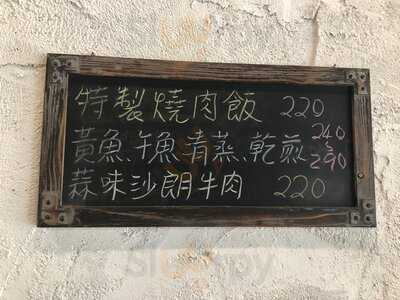 特製燒肉飯 220
黃魚、午魚、清蒸、乾煎 240~290
蒜味沙朗牛肉 220